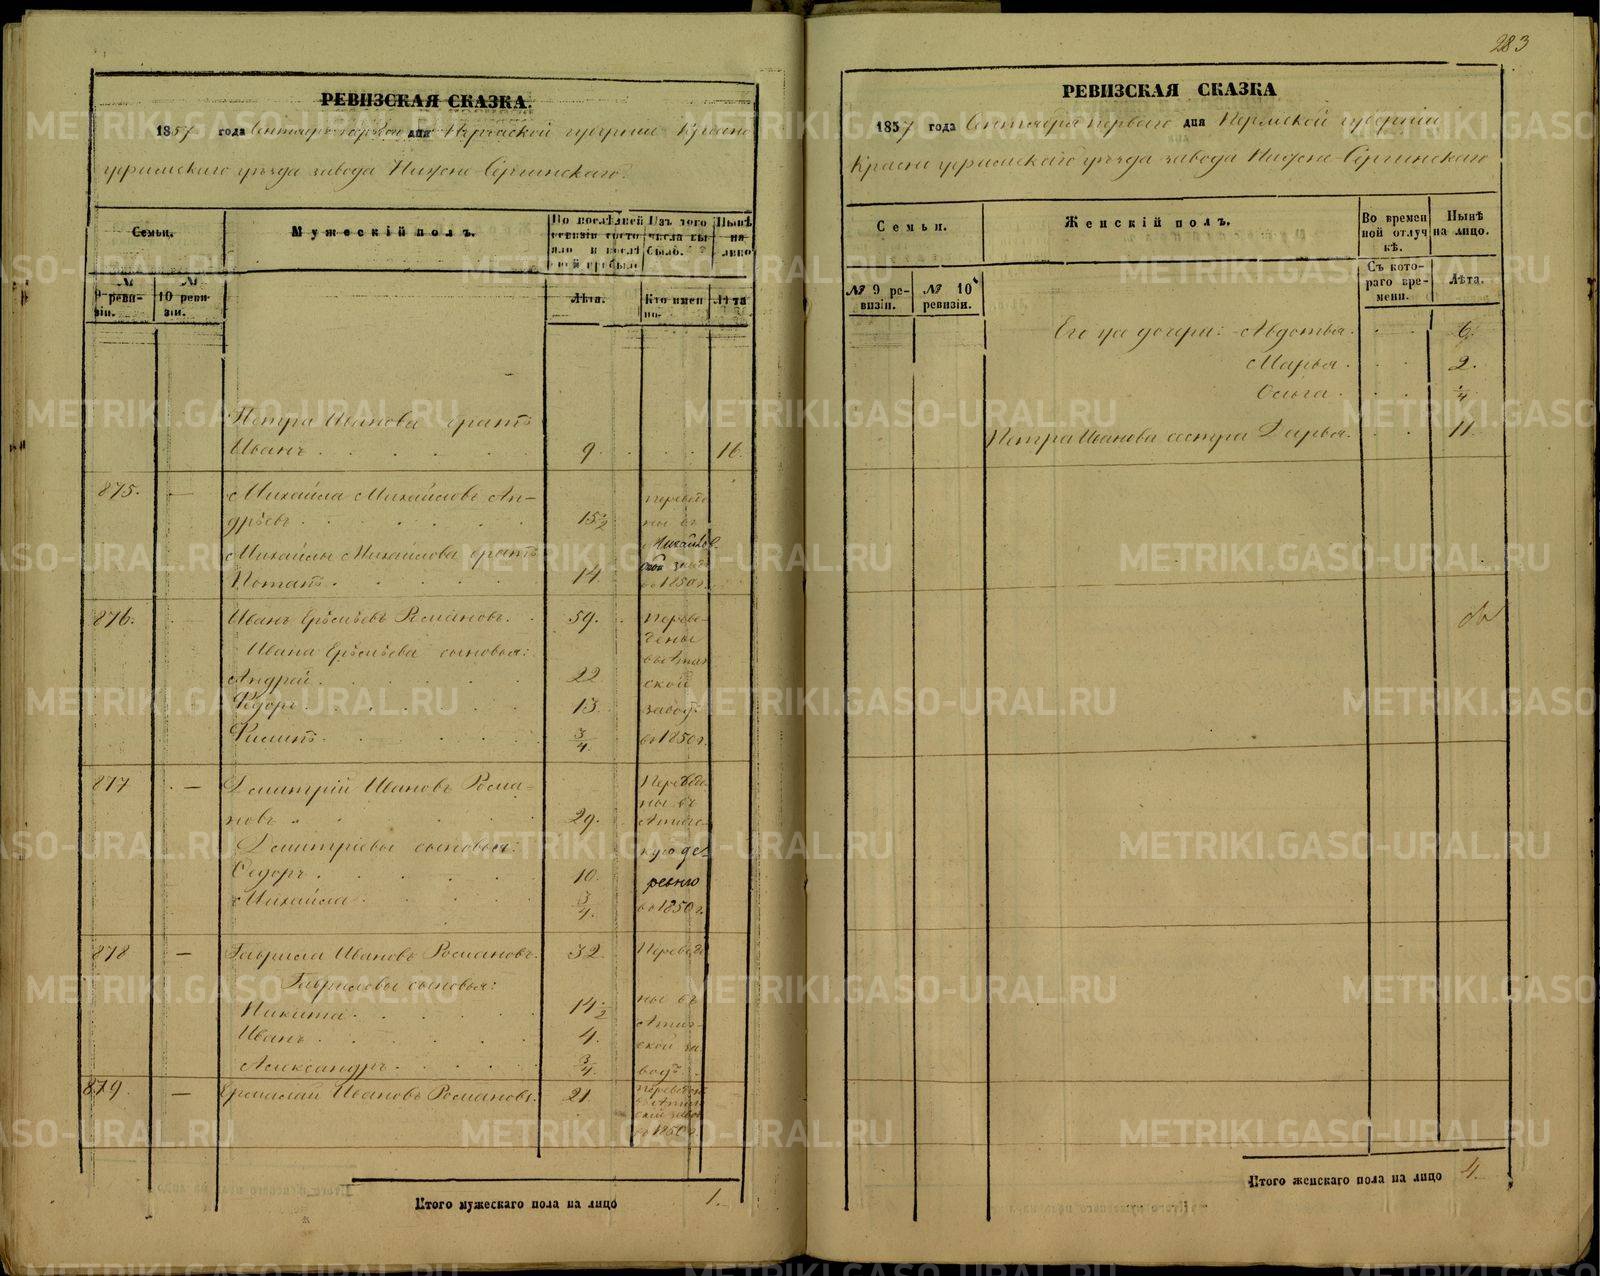 283
РЕВИЗСКАЯ СКАЗКА.
1857 года Сентября первого дня Пермской губернии Красно
уфимского уезда завода Нижне-Сергинскаго.
Семьи.
Мужескій полъ.
По послѣдней ревизіи состояло и послѣ
Изъ того числа выбыло.
Нынѣ на лицо
№ 9 ревизіи.
№ 10 ревизіи.
Лѣта.
Кто именно.
Лѣта
Петра Иванова братъ
Иванъ . 9 . 16.
875. — Михайла Михайловъ Ан-
дрѣевъ . 15½ переведе
ны въ
Михайлы Михайлова братъ Михайлов.
ской заводъ
Потапъ . 14 въ 1850 г.
876. Иванъ Романовъ. 59. Переве-
дены
Ивана сыновья:
въ Атиг
Андрей . 22 ской
Федоръ . 13 заводъ
Филипъ . 3/4. въ 1850 г.
877 — Дмитрій Ивановъ Рома- Переведе
ны въ
новъ 29. Атигс-
Дмитріевы сыновья: кую де-
Федоръ . 10. ревню
Михайла . 3/4. въ 1850 г.
878 — Гаврила Ивановъ Романовъ. 32 Переведе
Гавриловы сыновья:
Никита . 14½ ны въ
Атиг-
Иванъ . 4. ской за
Александръ . 3/4. водъ
879. — Ермолай Ивановъ Романовъ. 21 переведенъ
въ Атиг
скій заводъ
въ 1850 г.
Итого мужескаго пола на лицо 1.
РЕВИЗСКАЯ СКАЗКА
1857 года Сентября первого дня Пермской губерніи
Красноуфимскаго уѣзда завода Нижне-Сергинскаго
Семьи.
Женскій полъ.
Во временной отлучкѣ.
Нынѣ на лицо.
№ 9 ревизіи.
№ 10 ревизіи.
Съ котораго времени.
Лѣта.
Его дочери: Авдотья . 6.
Марья . 2.
Ольга . ¼
Петра Иванова сестра Дарья . 11.
Итого женскаго пола на лицо 4.
METRIKI.GASO-URAL.RU